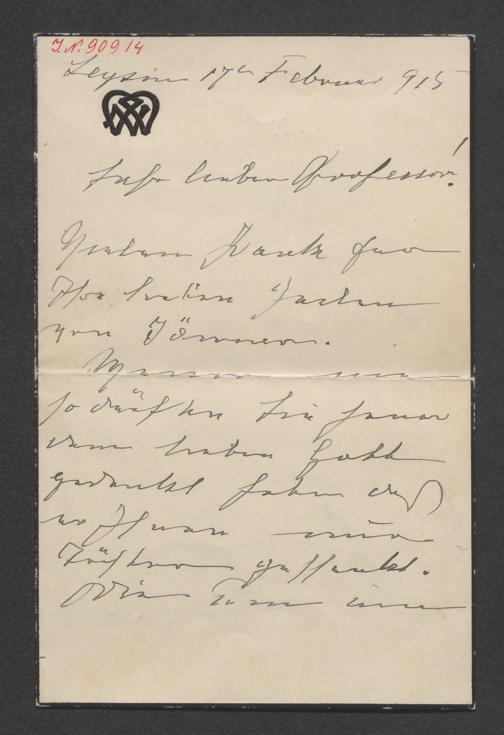 I.N. 90914
Leysin 17te Februar 915
Sehr lieber Professor!
Vielen Dank für
Ihre lieben Zeilen
vom Jänner.
so dürften Sie
dem lieben Gott
gedankt haben daß
er Ihnen nur
Töchter geschenkt.
Wie